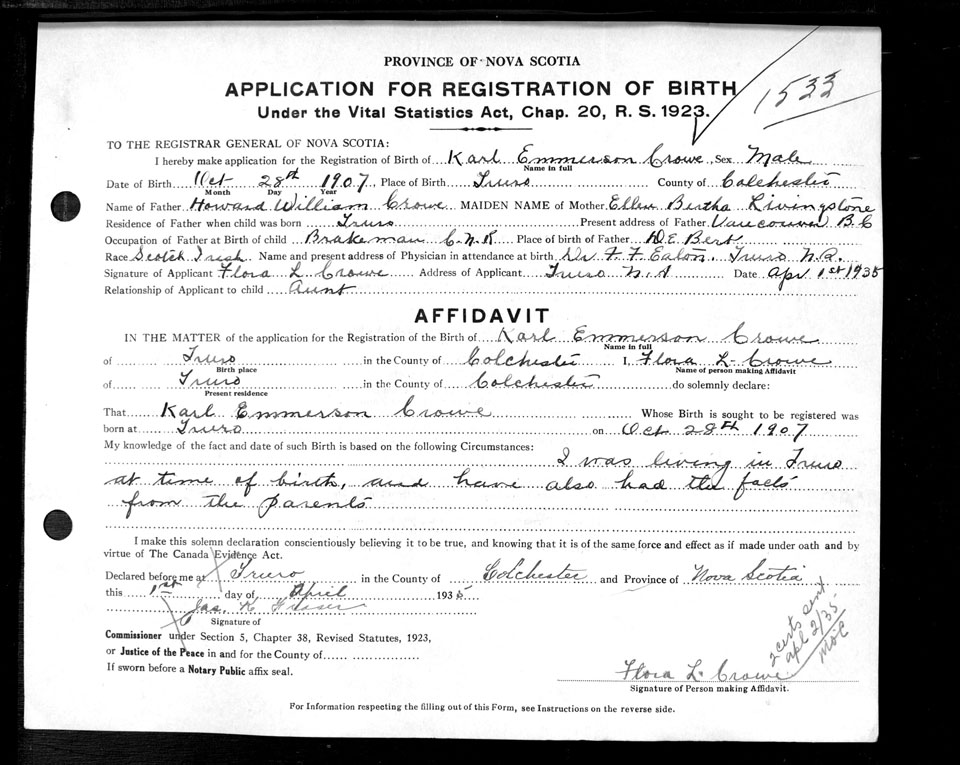 PROVINCE OF NOVA SCOTIA
APPLICATION FOR REGISTRATION OF BIRTH
1533
Under the Vital Statistics Act, Chap. 20, R. S. 1923.
TO THE REGISTRAR GENERAL OF NOVA SCOTIA:
I hereby make application for the Registration of Birth of Karl Emmerson Crowe, Sex Male
Name in full
Date of Birth Oct 28th 1907, Place of Birth Truro County of Colchester
Month Day Year
Name of Father Howard William Crowe MAIDEN NAME of Mother Ellen Bertha Livingstone
Residence of Father when child was born Truro Present address of Father Vancouver B C
Occupation of Father at Birth of child Brakeman C.N.R Place of birth of Father De Bert
Race Scotch Irish Name and present address of Physician in attendance at birth Dr F. F. Eaton, Truro N.S.
Signature of Applicant Flora L. Crowe Address of Applicant Truro N.S Date Apr 1st 1935
Relationship of Applicant to child Aunt
AFFIDAVIT
IN THE MATTER of the application for the Registration of the Birth of Karl Emmerson Crowe
Name in full
of Truro in the County of Colchester I, Flora L. Crowe
Birth place Name of person making Affidavit
of Truro in the County of Colchester do solemnly declare:
Present residence
That Karl Emmerson Crowe Whose Birth is sought to be registered was
born at Truro on Oct 28th 1907
My knowledge of the fact and date of such Birth is based on the following Circumstances:
I was living in Truro
at time of birth, and have also had the facts
from the parents
I make this solemn declaration conscientiously believing it to be true, and knowing that it is of the same force and effect as if made under oath and by
virtue of The Canada Evidence Act.
Declared before me at Truro in the County of Colchester and Province of Nova Scotia
this 1st day of April 1935
Jas. K. Fraser
Signature of
Commissioner under Section 5, Chapter 38, Revised Statutes, 1923,
or Justice of the Peace in and for the County of
If sworn before a Notary Public affix seal.
2 certs sent
apl 2/35
Flora L. Crowe
Signature of Person making Affidavit.
For Information respecting the filling out of this Form, see Instructions on the reverse side.